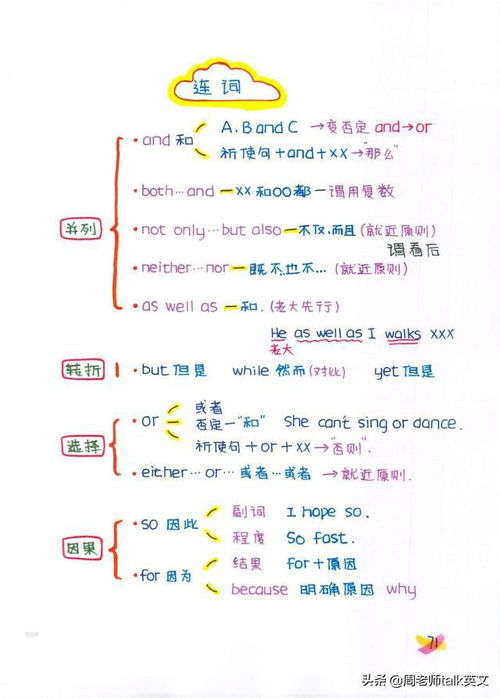 连词
并列
· and 和
A, B and C → 变否定 and→or
祈使句 + and + xx → "那么"
· both… and — xx 和OO都 — 谓用复数
· not only … but also — 不仅,而且 (就近原则)
谓看后
· neither … nor — 既不,也不… (就近原则)
· as well as — 和. (老大先行)
He as well as I walks xxx
老大
转折
· but 但是 while 然而(对比) yet 但是
选择
· or
或者
否定 — "和" She can't sing or dance.
祈使句 + or + xx → "否则".
· either… or… 或者…或者 → 就近原则.
因果
· so 因此
副词 I hope so.
程度 So fast.
· for 因为
结果 for + 原因
because 明确原因 why
71
头条 @周老师talk英文